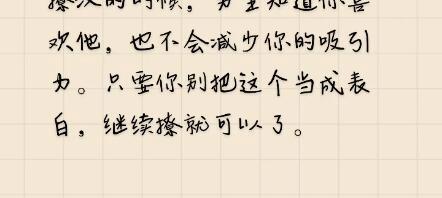 撩汉的时候，男生知道你喜
欢他，也不会减少你的吸引
力。只要你别把这个当成表
白，继续撩就可以了。